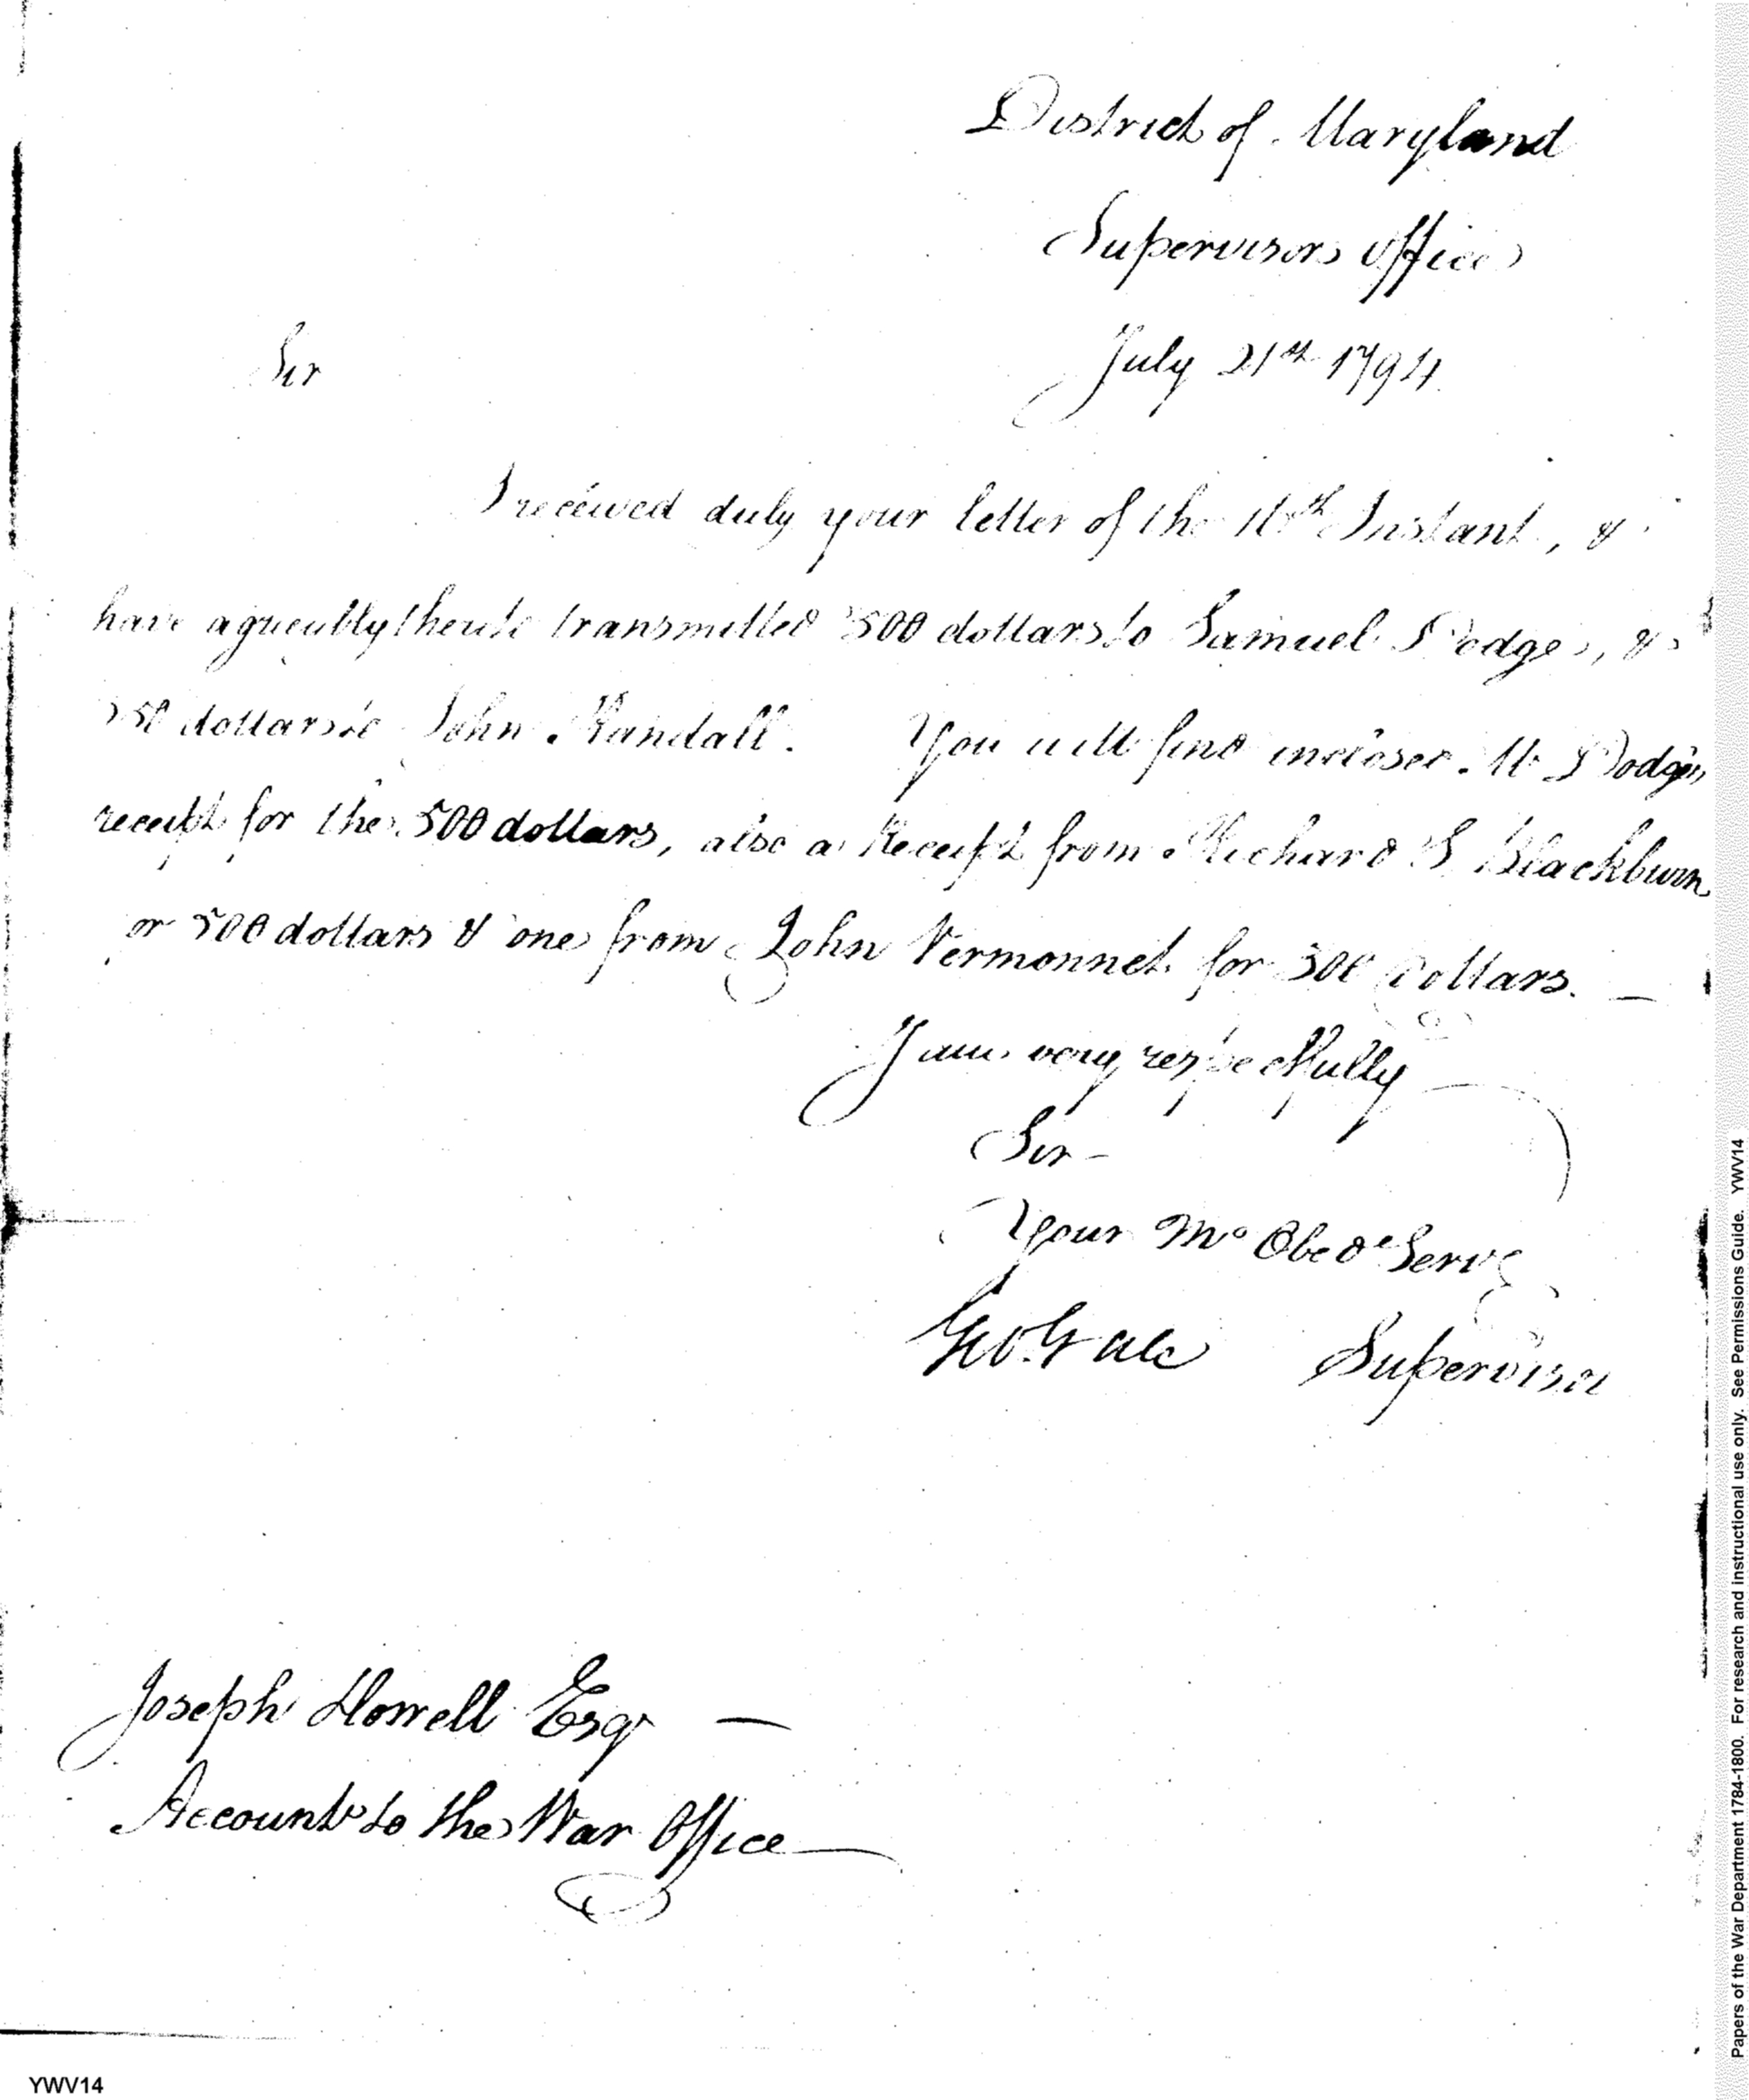 District of Maryland
Supervisors Office
Sir
July 21st 1794
I received duly your letter of the Instant, &
have agreeably thereto transmitted 500 dollars to Samuel Dodge, &
dollars to John Randall. You will find inclosed Mr Dodges
receipt for the 500 dollars, also a Receipt from Richard S Blackburn
or 500 dollars & one from John Vermonnet for 300 Dollars. —
I am very respectfully
Sir -
Your Mo Obed Serv
Geo. Gale Supervisor
Joseph Howell Esqr —
Accountt to the War Office —
YWV14
Papers of the War Department 1784-1800. For research and instructional use only. See Permissions Guide. YWV14